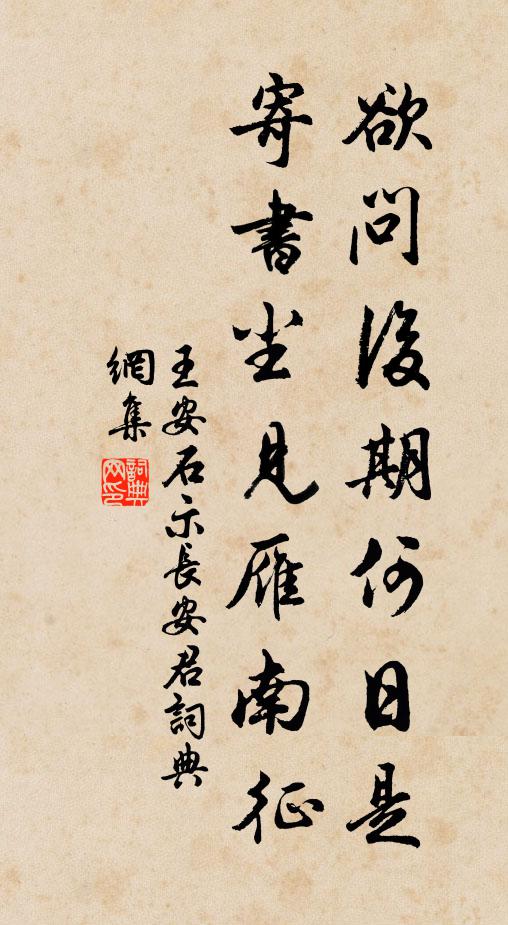 欲問後期何日是
寄書尘見雁南征
王安石示長安君詞典
網集
詞典網印